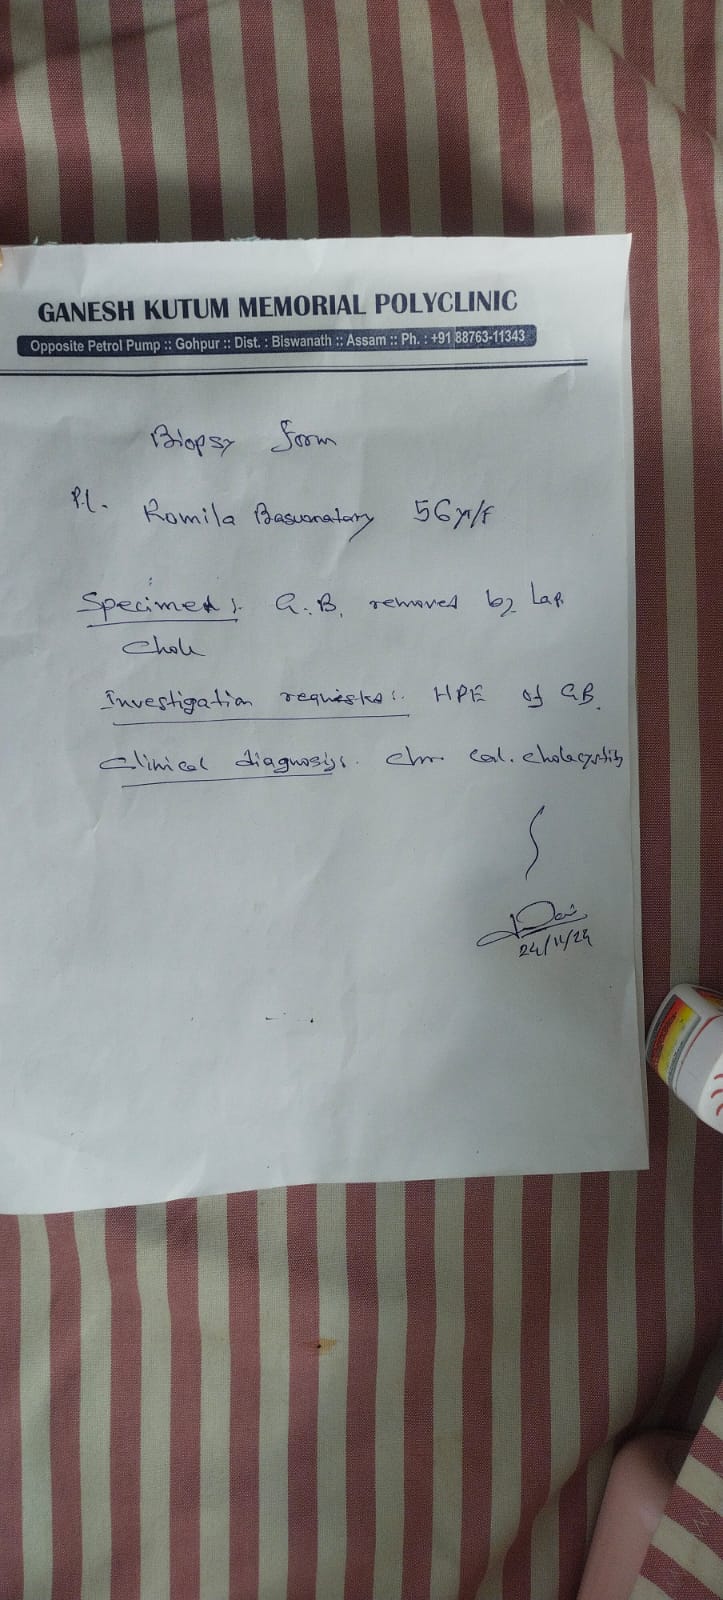 GANESH KUTUM MEMORIAL POLYCLINIC
Opposite Petrol Pump :: Gohpur :: Dist. : Biswanath :: Assam :: Ph. : +91 88763-11343
Biopsy form
Pt. Romila Basumatary 56 yr/f
Specimen :- G.B. removed by Lap.
Chole
Investigation requests :- HPE of GB.
Clinical diagnosis. Chr. Cal. Cholecystitis
24/11/24